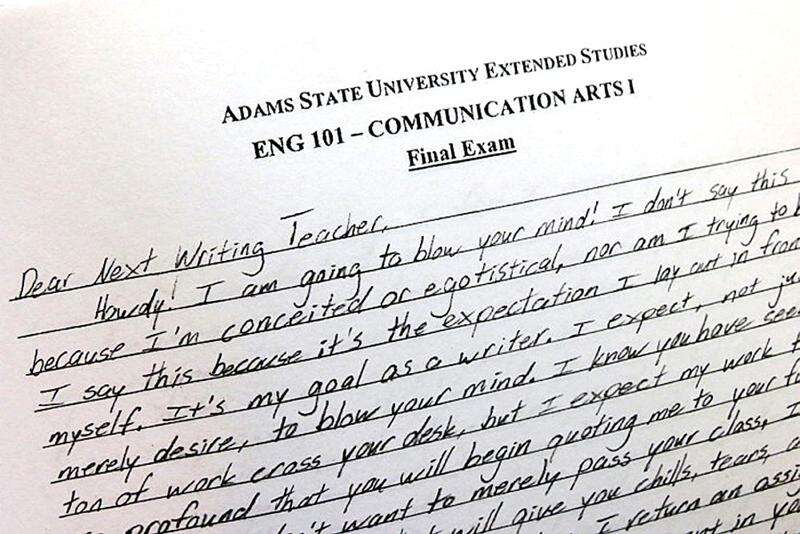 ADAMS STATE UNIVERSITY EXTENDED STUDIES
ENG 101 – COMMUNICATION ARTS I
Final Exam
Dear Next Writing Teacher,
Howdy! I am going to blow your mind! I don't say this
because I'm conceited or egotistical, nor am I trying to
I say this because it's the expectation I lay out in
myself. It's my goal as a writer. I expect, not
merely desire, to blow your mind. I know you have
ton of work cross your desk, but I expect my work
profound that you will begin quoting me to your
want to merely pass your class. I
will give you chills, tears,
I return an
in